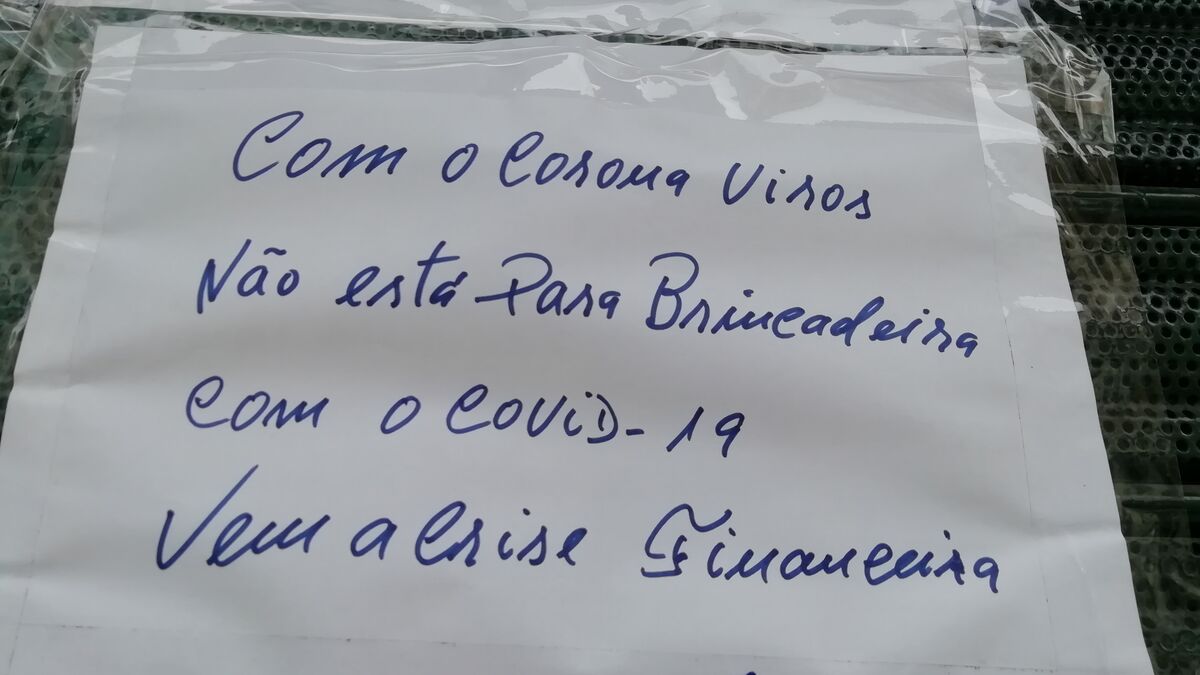 Com o Corona Viros
Não está Para Brincadeira
com o COViD-19
Vem a Crise Financeira